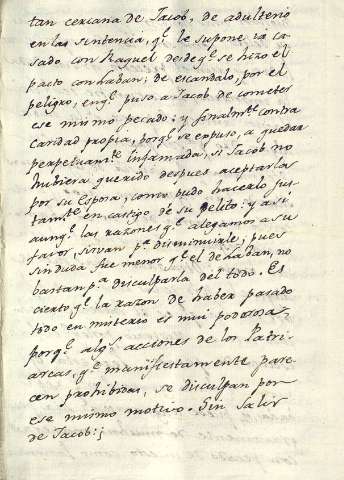 tan cercana de Jacob, de adulterio
en las sentencia, q.e le supone ia ca-
sado con Raquel desde q.e se hizo el
pacto con Laban; de escandalo, por el
peligro, en q.e puso a Jacob de cometer
ese mismo pecado: y finalm.te contra
caridad propia, porq.e se expuso, a quedar
perpetuam.te infamada, si Jacob no
hubiera querido despues aceptarla
por su Esposa, como pudo hacerlo jus-
tam.te en castigo de su delito: y asi
aunq.e las razones q.e alegamos a su
favor, sirvan p.a disminuirle, pues
sin duda fue menor q.e el de Laban, no
bastan p.a disculparla del todo. Es
cierto q.e la razon de haber pasado
todo en misterio es mui poderosa,
porq.e alg.s acciones de los Patri-
arcas, q.e manifiestamente pare-
cen prohibidas, se disculpan por
ese mismo motivo. Sin salir
de Jacob:;